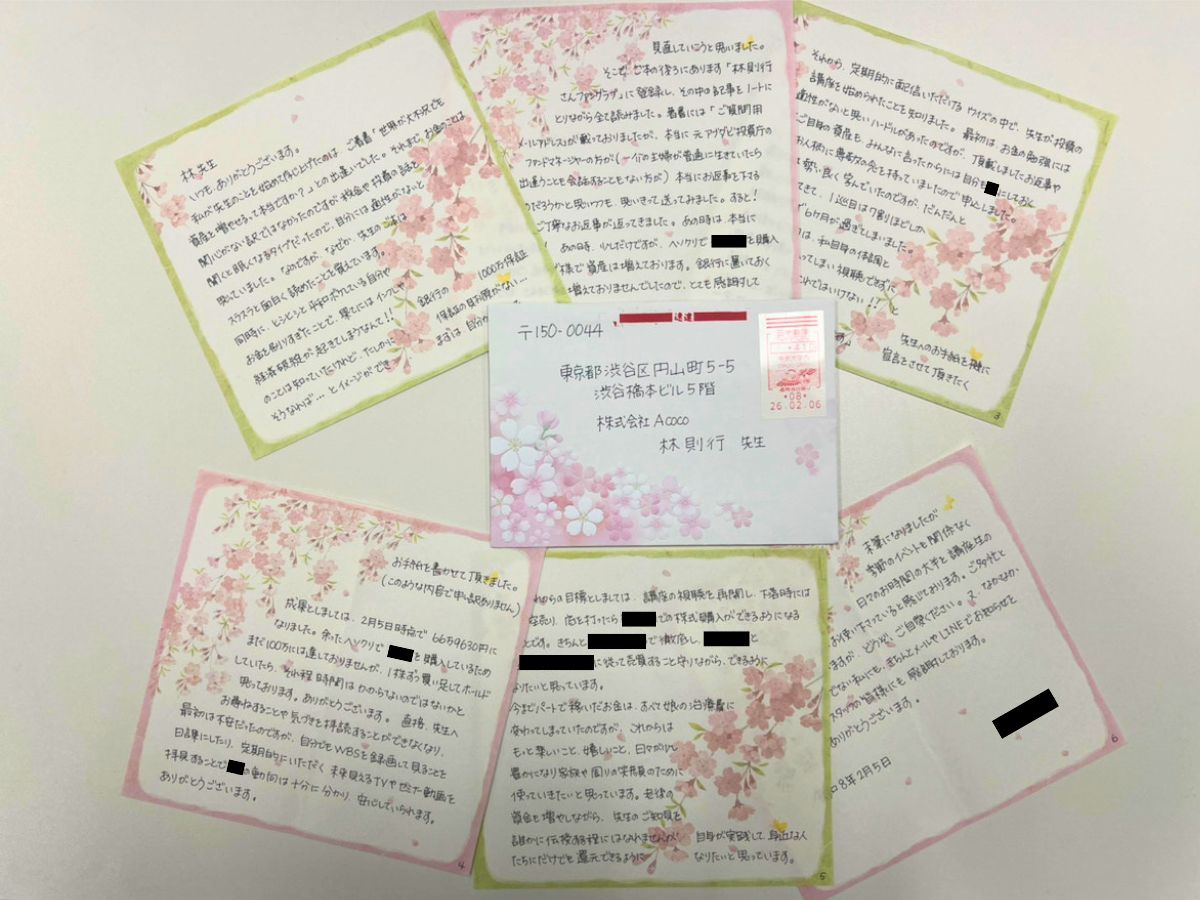 林先生
いつも ありがとうございます。
私が先生のことを始めて存じ上げたのは ご著書「世界が大不況でも
資産を増やせるって本当ですか?」との出逢いでした。それまで お金のことは
関心がない訳ではなかったのですが 税金や投資の話を
聞くと眠くなるタイプだったので、自分には適性がないと
思っていました。なのですが なぜか、先生のご本は
スラスラと面白く読めたことを覚えています。
同時に、ヒシヒシと平和ボケしている自分や
お金を刷りすぎたことで、果てにはインフレや
経済破綻が起きてしまうなんて!!
銀行の 1000万保証
のことは知っていたけれど、たしかに 保証の財源がない…
そうなれば… とイメージができ
まずは 自分か
見直していこうと思いました。
そこで、ご本の後ろにあります「林則行
さんファンクラブ」に登録し、その中の記事を ノートに
とりながら全て読みました。著書には「ご質問用
メールアドレス」が載っておりましたが、本当に 元アブダビ投資庁の
ファンドマネージャーの方が(一介の主婦が普通に生きていたら
出逢うことも会話することもない方が) 本当にお返事を下さる
のだろうかと思いつつも、思いきって送ってみました。すると!
ご丁寧なお返事が返ってきました。あの時は、本当に
! あの時、少しだけですが、ヘソクリで を購入
様で資産は増えております。銀行に置いておく
増えておりませんでしたので、とても感謝して
それから、定期的に配信いただける ウイズの中で、先生が投資の
講座を始められたことを知りました。最初は、お金の勉強には
適性がないと思いハードルがあったのですが、頂戴しましたお返事や
ご自身の資産も、みんなに言ったからには自分も にしておく
お人柄に尊敬の念を持っていましたので申込しました。
勢い良く学んでいたのですが、だんだんと
てきて、1巡目は7割りほどしか
6ヶ月が過ぎてしまいました。
は、私自身の体調と
ってしまい視聴できずに
これではいけない!!と
先生へのお手紙を機に
宣言をさせて頂きたく
3
〒150-0044
速達
東京都渋谷区円山町5-5
渋谷橋本ビル5階
株式会社Acoco
林 則行 先生
08
26.02.06
お手紙を書かせて頂きました。
(このような内容で申し訳ありません)
成果としましては、2月5日時点で 66万9630円に
なりました。余ったヘソクリで を購入しているため
まだ100万には達しておりませんが、1株ずつ買い足してホールド
していたら、それ程 時間は かからないのではないかと
思っております。ありがとうございます。直接、先生へ
お尋ねすることや気づきを拝読することができなくなり、
最初は不安だったのですが、自分でもWBSを録画して見ることを
日課にしたり、定期的にいただく 未来見えるTVや 動画を
拝見することで の動向は十分に分かり、安心していられます。
ありがとうございます。
4
れからの目標としましては、講座の視聴を再開し、下落時には
空売り、底を打ったら での株式購入ができるようになる
ことです。きちんと で徹底し、 と
に従って売買すること守りながら、できるように
なりたいと思っています。
今までパートで稼いだお金は、すべて娘の治療費に
変わってしまっていたのですが、これからは
もっと楽しいこと、嬉しいこと、日々が少し
豊かになり家族や周りの笑顔のために
使っていきたいと思っています。老後の
資金を増やしながら、先生のご知見を
誰かに伝授する程にはなれませんが 自身が実践して身近な人
たちにだけでも 還元できるように なりたいと思っています。
5
末筆になりましたが
季節のイベントも関係なく
日々のお時間の大半を講座生の
お使い下さっていると感じております。ご多忙と
ますが、どうぞ、ご自愛ください。又、なかなか、
でない私にも、きちんとメールやLINEでお知らせを
スタッフの皆様にも感謝しております。
ありがとうございます。
8年2月5日
6